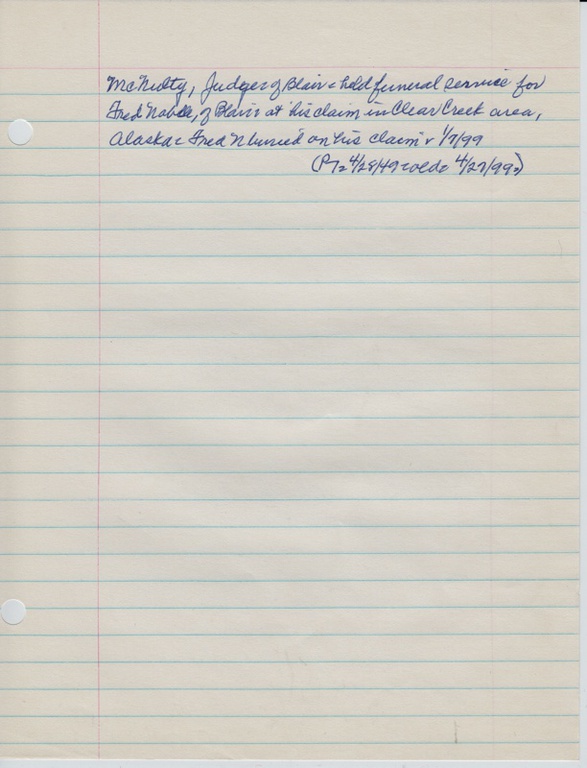 McNulty, Judge of Blair - held funeral service for
Fred Noble, of Blair at his claim in Clear Creek area,
Alaska - Fred N buried on his claim 1/7/99
(P 7 - 4/28/49 4/27/99)